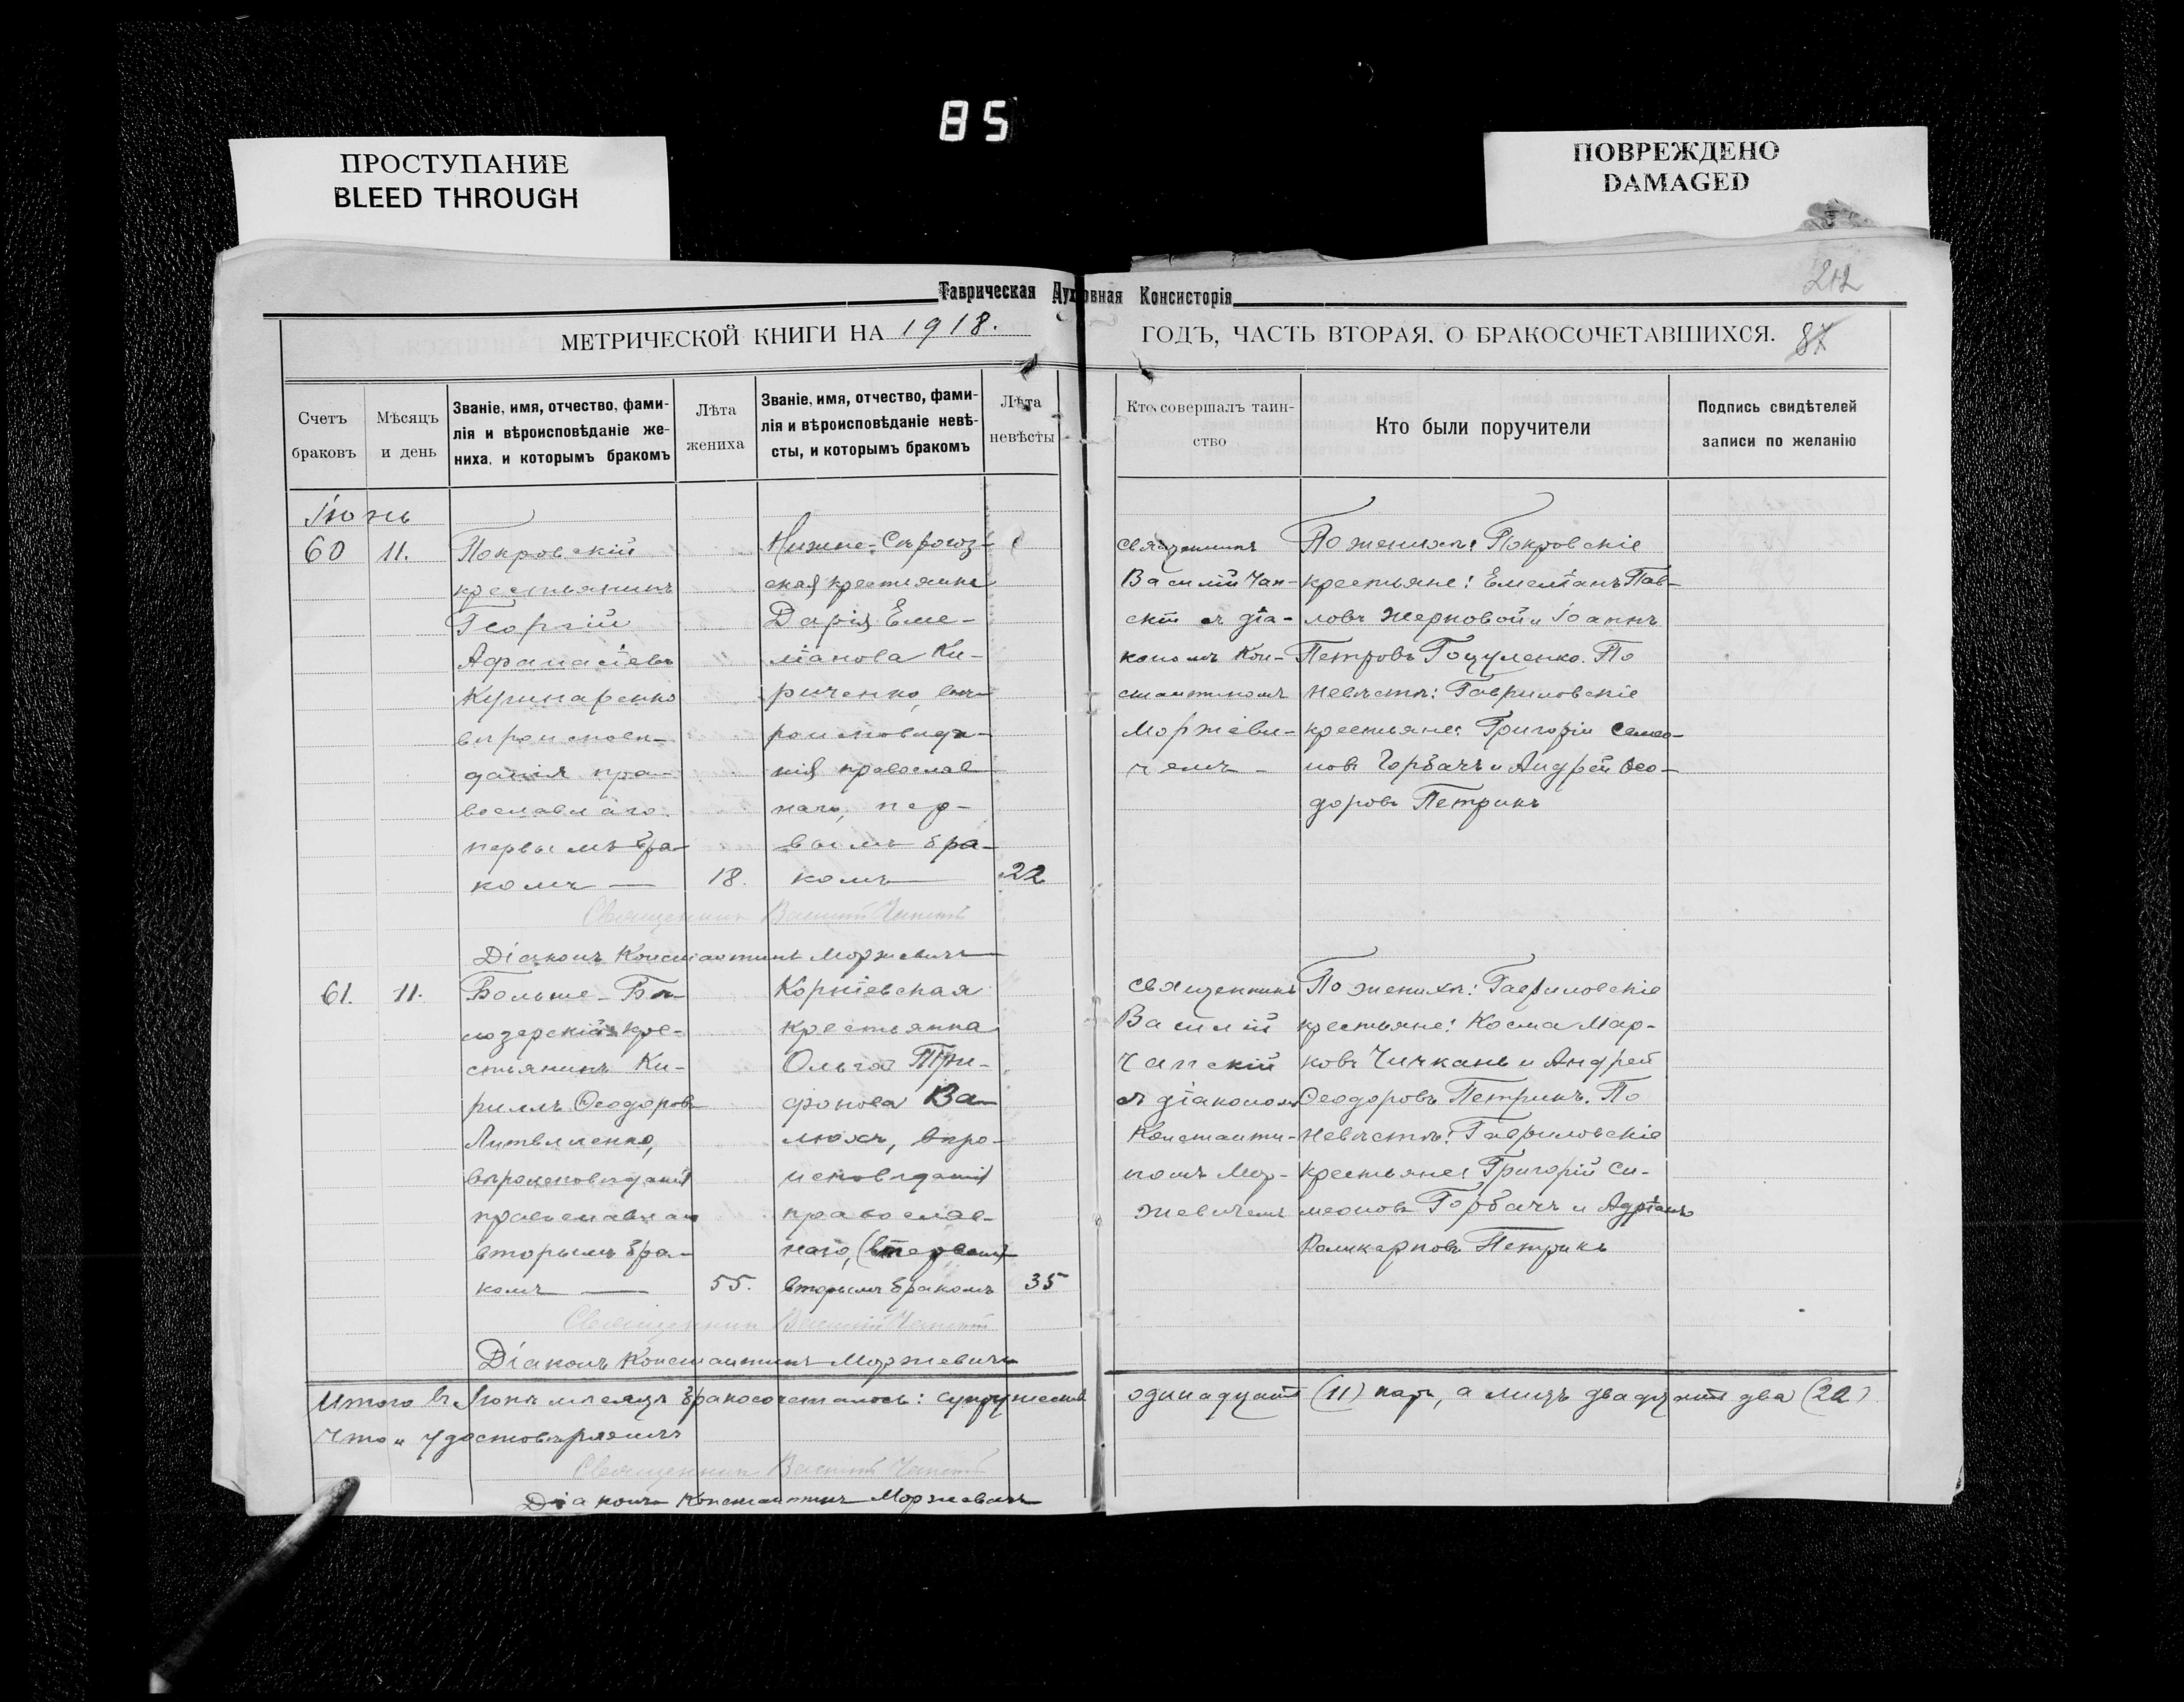 85
ПРОСТУПАНИЕ
BLEED THROUGH
ПОВРЕЖДЕНО
DAMAGED
212
Таврическая Духовная Консисторія
МЕТРИЧЕСКОЙ КНИГИ НА 1918.
ГОДЪ, ЧАСТЬ ВТОРАЯ, О БРАКОСОЧЕТАВШИХСЯ. 87
Счетъ
браковъ
Мѣсяцъ
и день
Званіе, имя, отчество, фами-
лія и вѣроисповѣданіе же-
ниха, и которымъ бракомъ
Лѣта
жениха
Званіе, имя, отчество, фами-
лія и вѣроисповѣданіе невѣ-
сты, и которымъ бракомъ
Лѣта
невѣсты
Кто совершалъ таин-
ство
Кто были поручители
Подпись свидѣтелей
записи по желанію
Іюнь
60
11.
Покровскій
крестьянинъ
Георгій
Афанасіевъ
вѣроисповѣ-
данія пра-
вославнаго
первымъ бра-
комъ —
18.
Нижне-Сѣрогоз-
ская крестьянка
Дарія Еме-
ліанова Ки-
риченко, вѣ-
роисповѣда-
нія православ-
наго, пер-
вымъ бра-
комъ
22
Священникъ
Василій Чап-
скій съ діа-
кономъ Кон-
стантиномъ
Моржеви-
чемъ -
По женихѣ: Покровскіе
крестьяне: Емеліанъ Пав-
ловъ Жерновой и Іоаннъ
Петровъ Гоцуленко. По
невѣстѣ: Гавриловскіе
крестьяне: Григорій Симео-
новъ Горбачъ и Андрей Ѳео-
доровъ Петрикъ
Священникъ Василій Чапскій
Діаконъ Константинъ Моржевичъ
61.
11.
Больше-Бѣ-
лозерскій кре-
стьянинъ Ки-
риллъ Ѳеодоровъ
Литвиненко,
вѣроисповѣданія
православнаго
вторымъ бра-
комъ —
55.
Корніевская
крестьянка
Ольга Три-
фонова Ва-
люхъ, вѣро-
исповѣданія
православ-
наго, (первымъ)
вторымъ бракомъ
35
Священникъ
Василій
Чапскій
съ діакономъ
Константи-
номъ Мор-
жевичемъ
По женихѣ: Гавриловскіе
крестьяне: Косма Мар-
ковъ Чичкань и Андрей
Ѳеодоровъ Петрикъ. По
невѣстѣ: Гавриловскіе
крестьяне: Григорій Си-
меоновъ Горбачъ и Адріанъ
Поликарповъ Петрикъ
Священникъ Василій Чапскій
Діаконъ Константинъ Моржевичъ
Итого въ Іюнѣ мѣсяцѣ бракосочеталось: супружествъ одинадцать (11) паръ, а лицъ двадцать два (22)
Что и удостовѣряемъ
Священникъ Василій Чапскій
Діаконъ Константинъ Моржевичъ